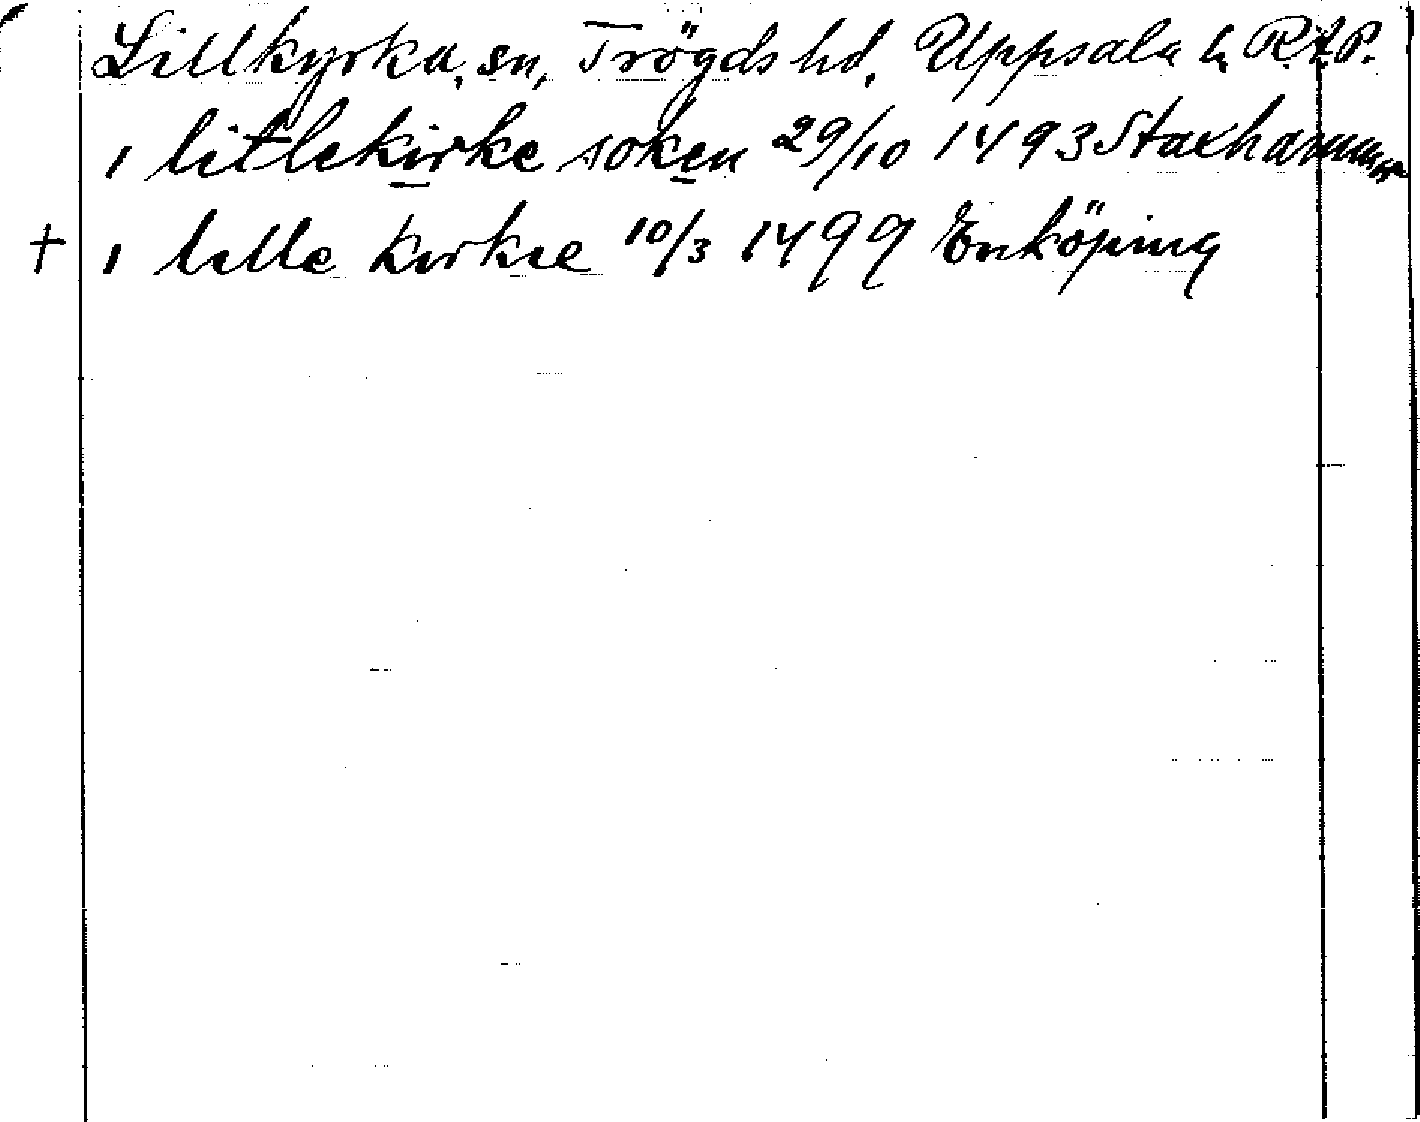 Lillkyrka, sn, Trögds hd, Uppsala l. R.A.P.
i litlekirke soken 29/10 1493 Stakhammar
+ i lille kirkie 10/3 1499 Enköping